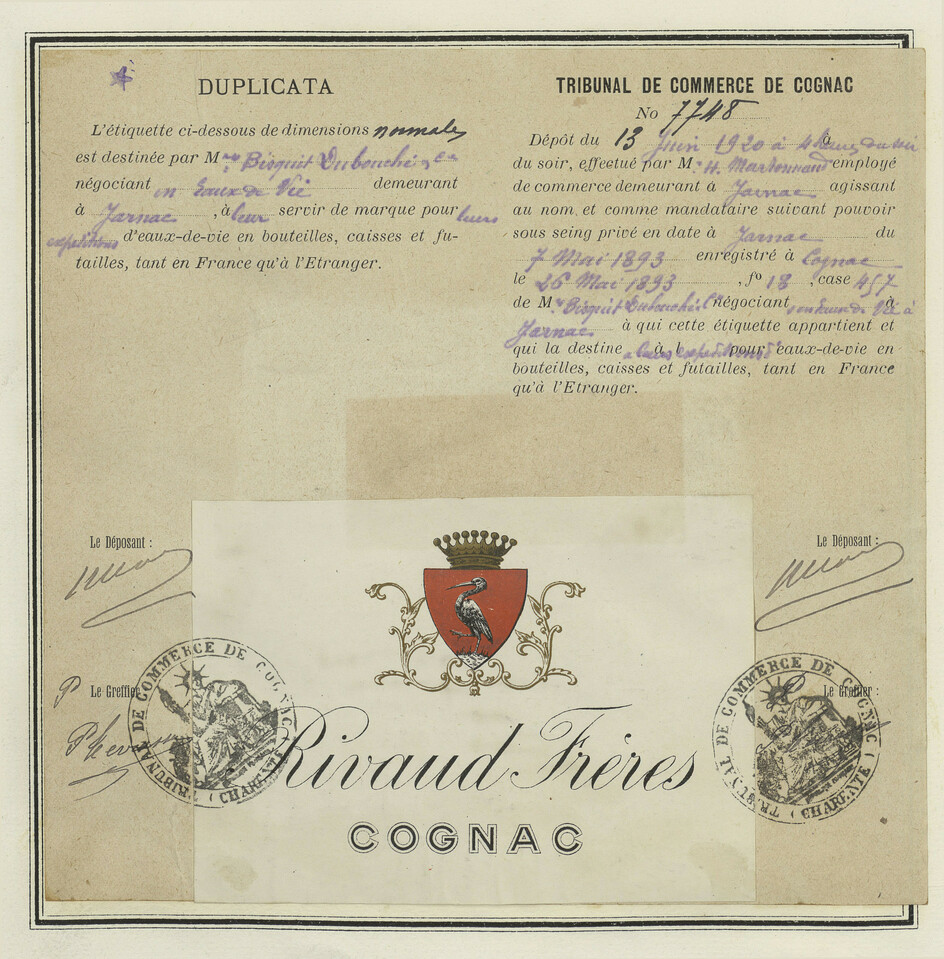 DUPLICATA
L'étiquette ci-dessous de dimensions normales
est destinée par M Bisquit Dubouché & Cie
négociant en Eaux de Vie demeurant
à Jarnac, à leur servir de marque pour leurs
expéditions d'eaux-de-vie en bouteilles, caisses et fu-
tailles, tant en France qu'à l'Etranger.
TRIBUNAL DE COMMERCE DE COGNAC
No 7748
Dépôt du 13 Juin 1920 à 4 heures du soir
du soir, effectué par M. H. Martonnaud employé
de commerce demeurant à Jarnac agissant
au nom, et comme mandataire suivant pouvoir
sous seing privé en date à Jarnac du
7 Mai 1893 enregistré à Cognac
le 26 Mai 1893, fo 18, case 457
de M Bisquit Dubouché & Cie négociant en Eaux de Vie à
Jarnac à qui cette étiquette appartient et
qui la destine à leurs expéditions d'eaux-de-vie en
bouteilles, caisses et futailles, tant en France
qu'à l'Etranger.
Le Déposant :
Le Déposant :
P Le Greffier
P Le Greffier :
TRIBUNAL DE COMMERCE DE COGNAC (CHARENTE)
TRIBUNAL DE COMMERCE DE COGNAC (CHARENTE)
Rivaud Frères
COGNAC